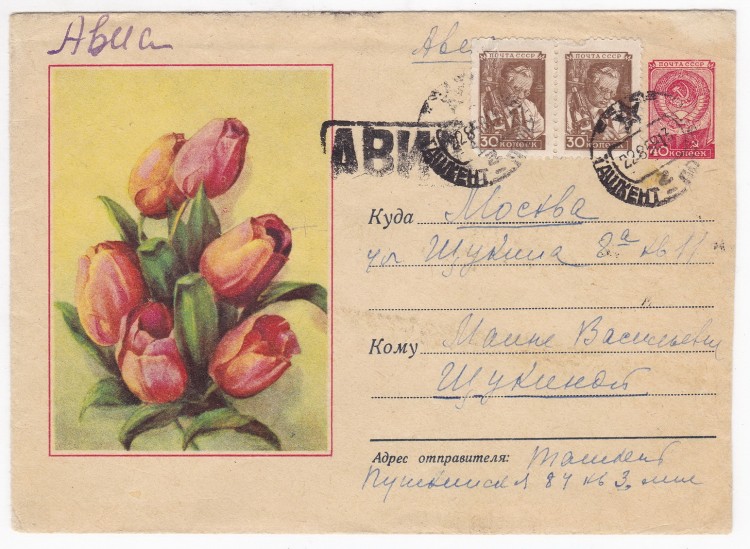 Авиа
ПОЧТА СССР ПОЧТА СССР ПОЧТА СССР
30 КОПЕЕК 30 КОПЕЕК 40 КОПЕЕК
АВИА
ТАШКЕНТ ТАШКЕНТ
Куда Москва
ул Щукина 8а кв 11
Кому Васильевне
Щукиной
Адрес отправителя: Ташкент
Пушкинская 84 кв 3.